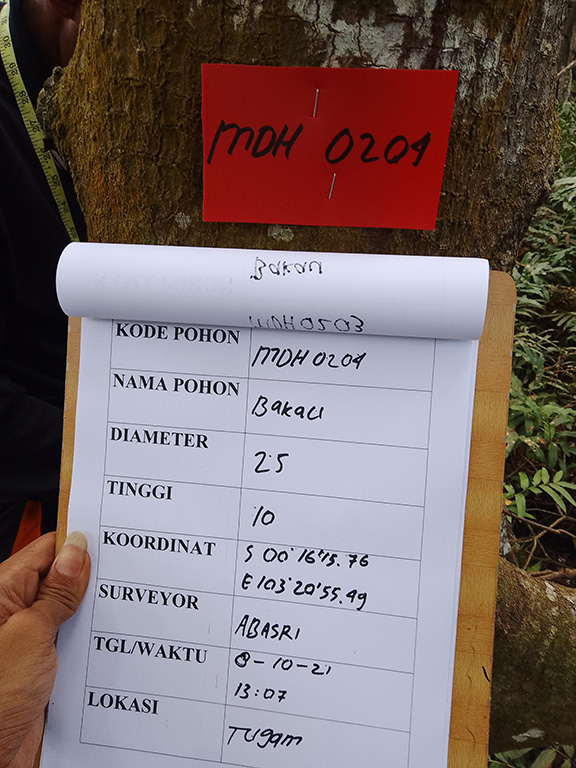 MDH 0204
Bakau
MDH0203
KODE POHON MDH 0204
NAMA POHON Bakau
DIAMETER 25
TINGGI 10
KOORDINAT S 00°16'15.76
E 103°20'55.49
SURVEYOR ABASRI
TGL/WAKTU 8-10-21
13:07
LOKASI Tugam